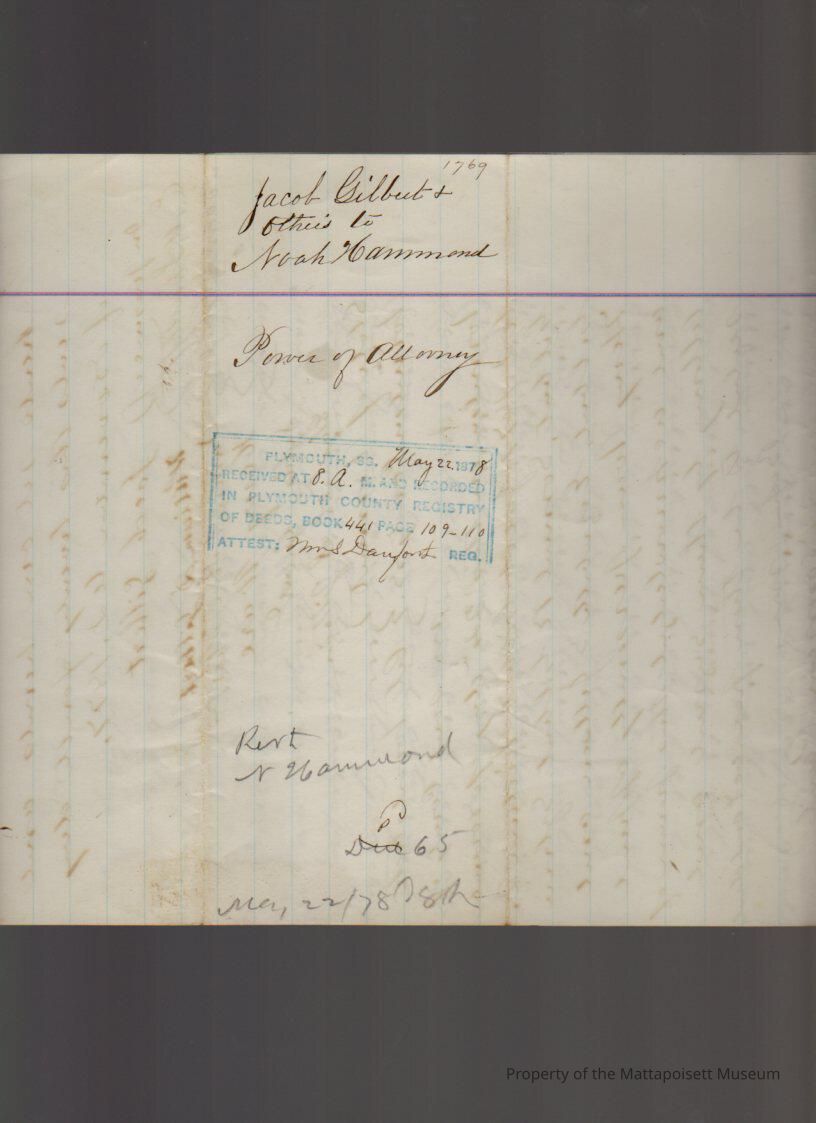 1769
Jacob Gilbert &
Others to
Noah Hammond
Power of Attorney
PLYMOUTH, SS. May 22, 1878
RECEIVED AT 8. A. M. AND RECORDED
IN PLYMOUTH COUNTY REGISTRY
OF DEEDS, BOOK 441 PAGE 109-110
ATTEST: Wm S Danforth REG.
N Hammond
Due 65
May 22/78 8h
Property of the Mattapoisett Museum